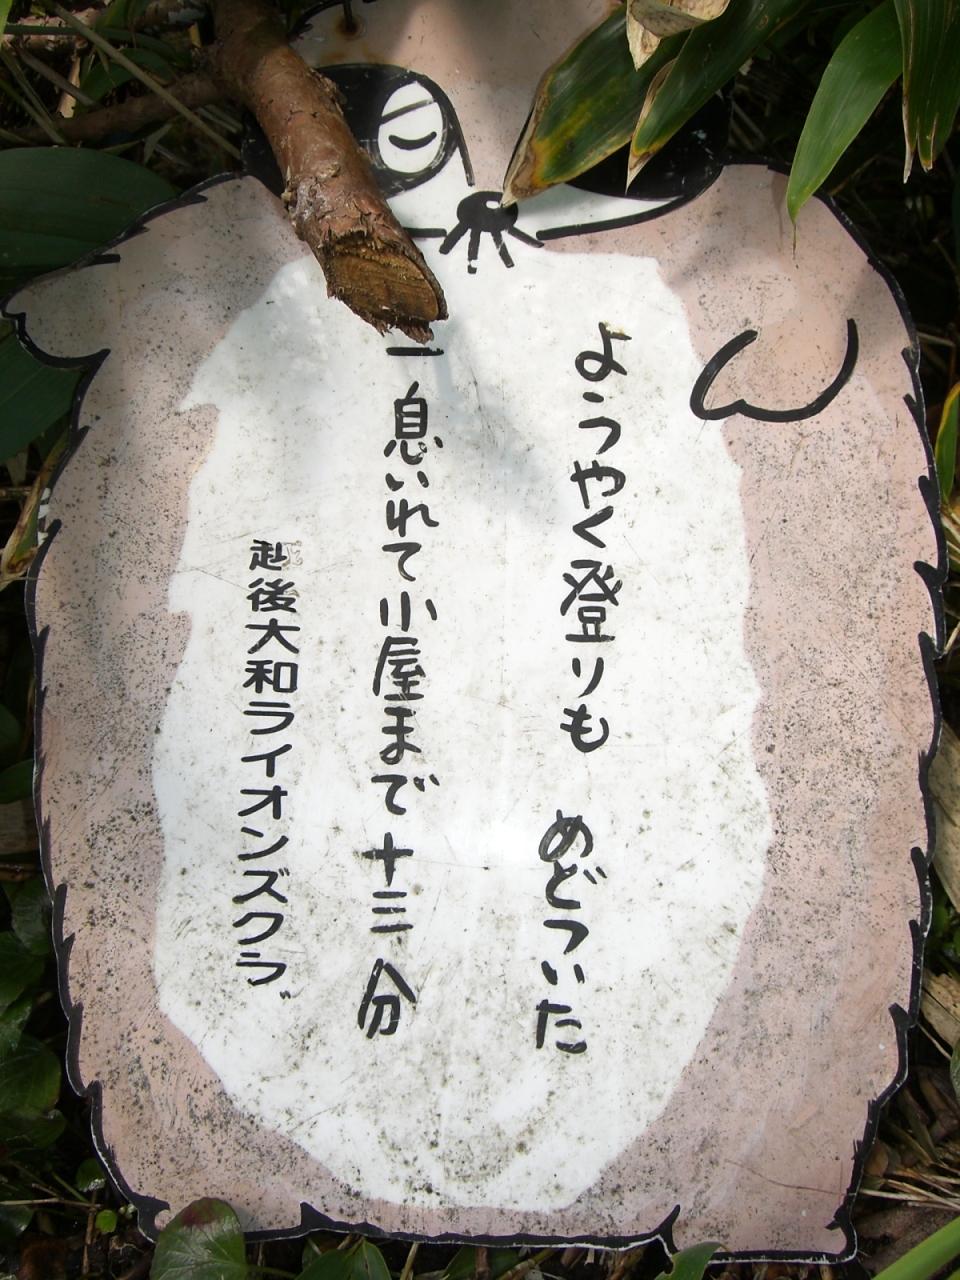 ようやく登りも めどついた
一息いれて小屋まで十三分
越後大和ライオンズクラブ